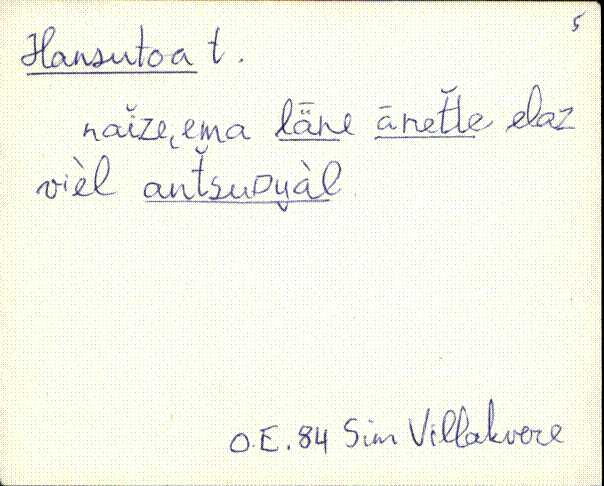 5
Hansutoa t.
naĭze, ema lǟne ānet̆le elaz
vièl ant̆suDyàl.
O.E. 84 Sim Villakvere